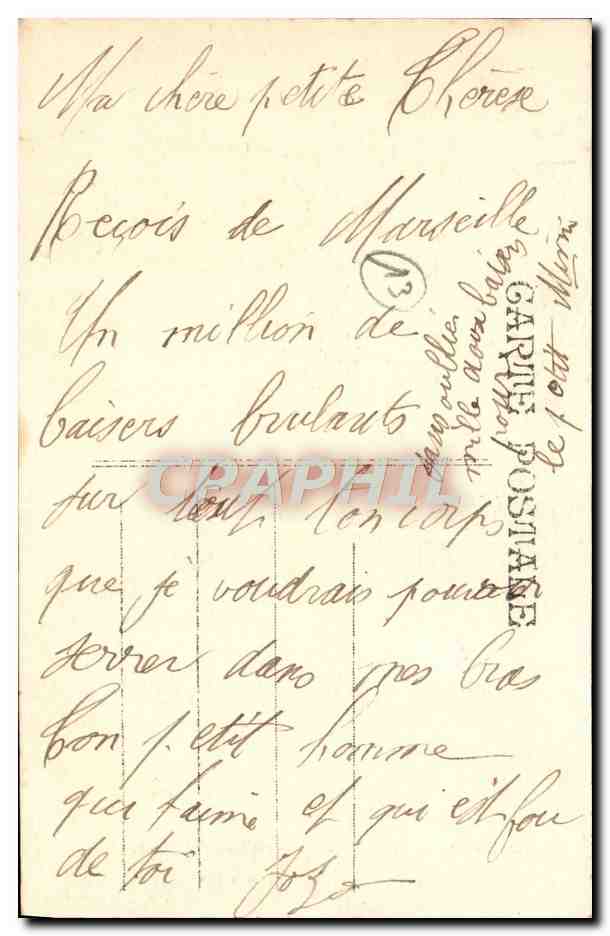 Ma chère petite Thérèse
Reçois de Marseille
Un million de
baisers brulants
sur tout ton corps
que je voudrais pouvoir
serrer dans mes bras
Ton petit homme
qui t'aime et qui est fou
de toi
13
sans oublier
mille doux baisers
pour
le petit
CARTE POSTALE
CPAPHIL